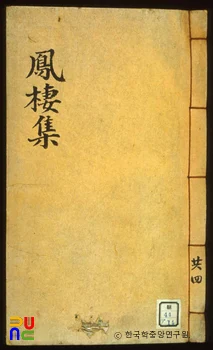 鳳棲集
共四
© 한국학중앙연구원